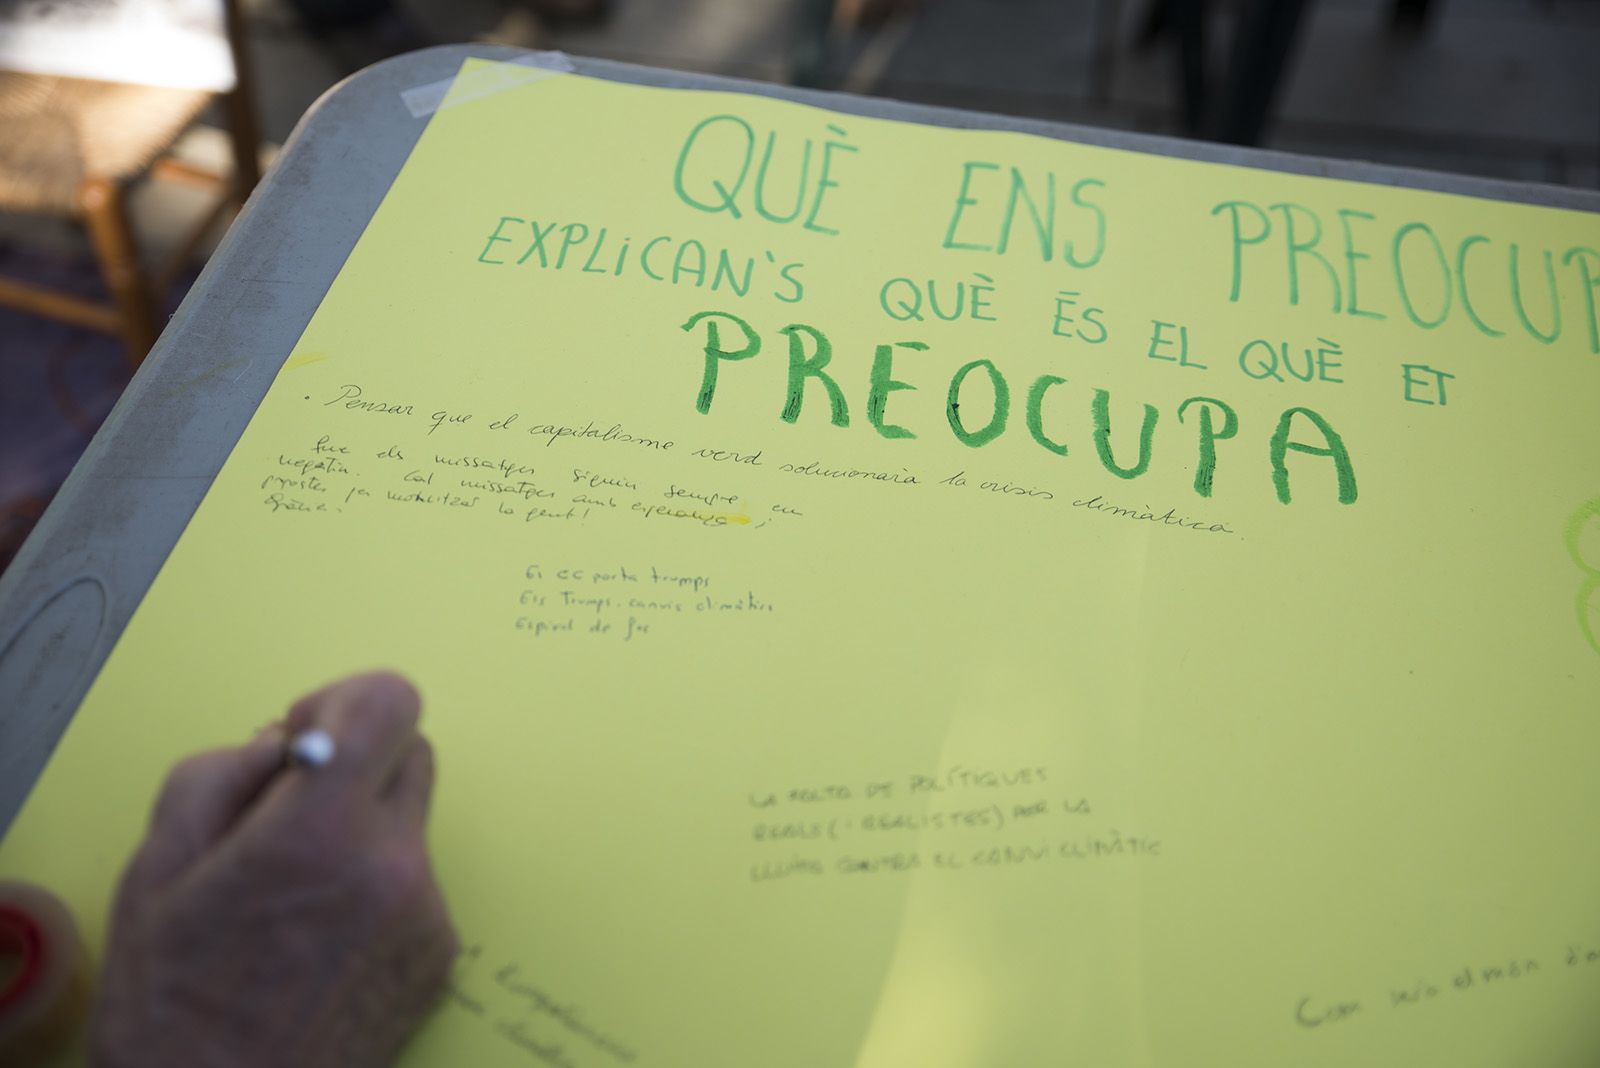 QUÈ ENS PREOCUP
EXPLICAN'S QUÈ ÉS EL QUÈ ET
PREOCUPA
. Pensar que el capitalisme verd solucionarà la crisis climàtica.
Que els missatges siguin sempre en
negatiu. Cal missatges amb esperança i
propostes per mobilitzar la gent!
Gràcies.
El cc porta trumps
Els Trumps. canvis climàtics
Espiral de
LA FALTA DE POLÍTIQUES
REALS (I REALISTES) PER LA
LLUITA CONTRA EL CANVI CLIMÀTIC
Com serà el món